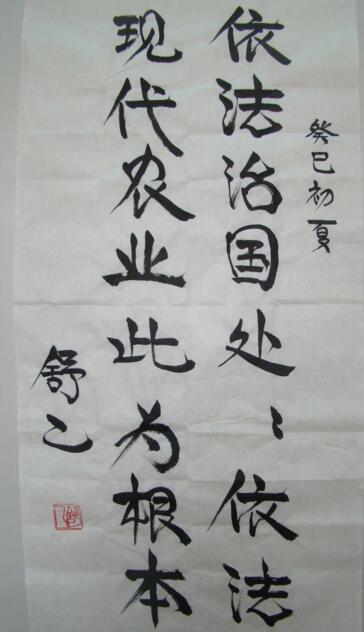 癸巳初夏
依法治国处〻依法
现代农业此为根本
舒乙